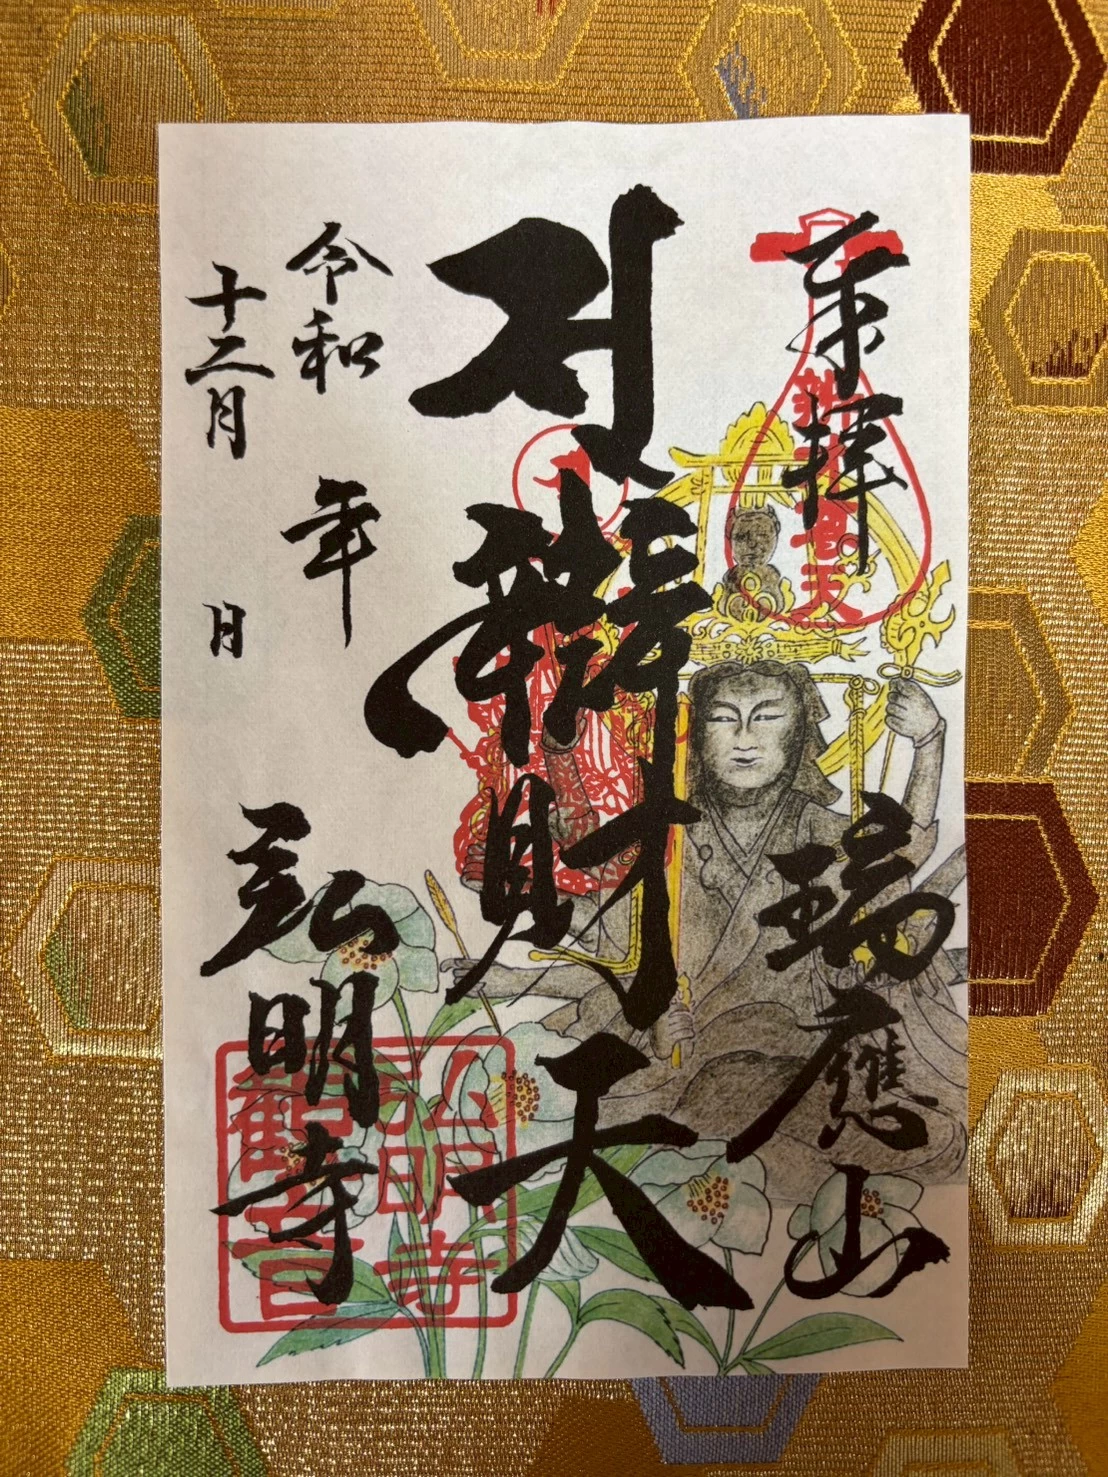 奉拝
瑞應山
辯財天
令和　年
十二月　日
弘明寺
弘明寺